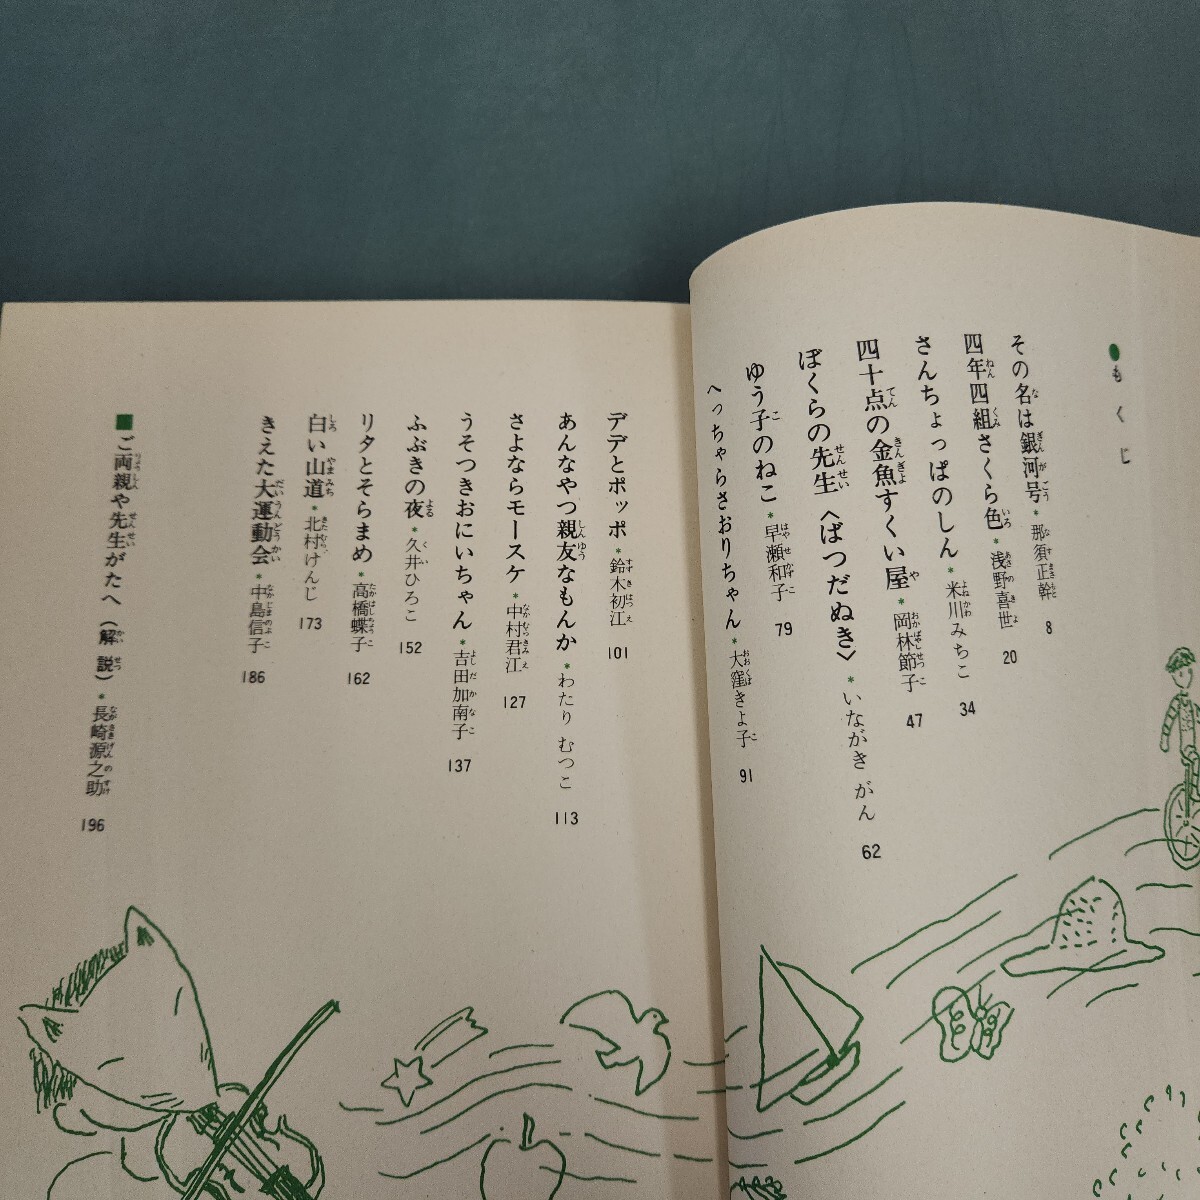 ●もくじ
その名は銀河号*那須正幹 8
四年四組さくら色*浅野喜世 20
さんちょっぱのしん*米川みちこ 34
四十点の金魚すくい屋*岡林節子 47
ぼくらの先生〈ばつだぬき〉*いながき がん 62
ゆう子のねこ*早瀬和子 79
へっちゃらさおりちゃん*大窪きよ子 91
デデとポッポ*鈴木初江 101
あんなやつ親友なもんか*わたり むつこ 113
さよならモースケ*中村君江 127
うそつきおにいちゃん*吉田加南子 137
ふぶきの夜*久井ひろこ 152
リタとそらまめ*高橋蝶子 162
白い山道*北村けんじ 173
きえた大運動会*中島信子 186
■ご両親や先生がたへ（解説）*長崎源之助 196